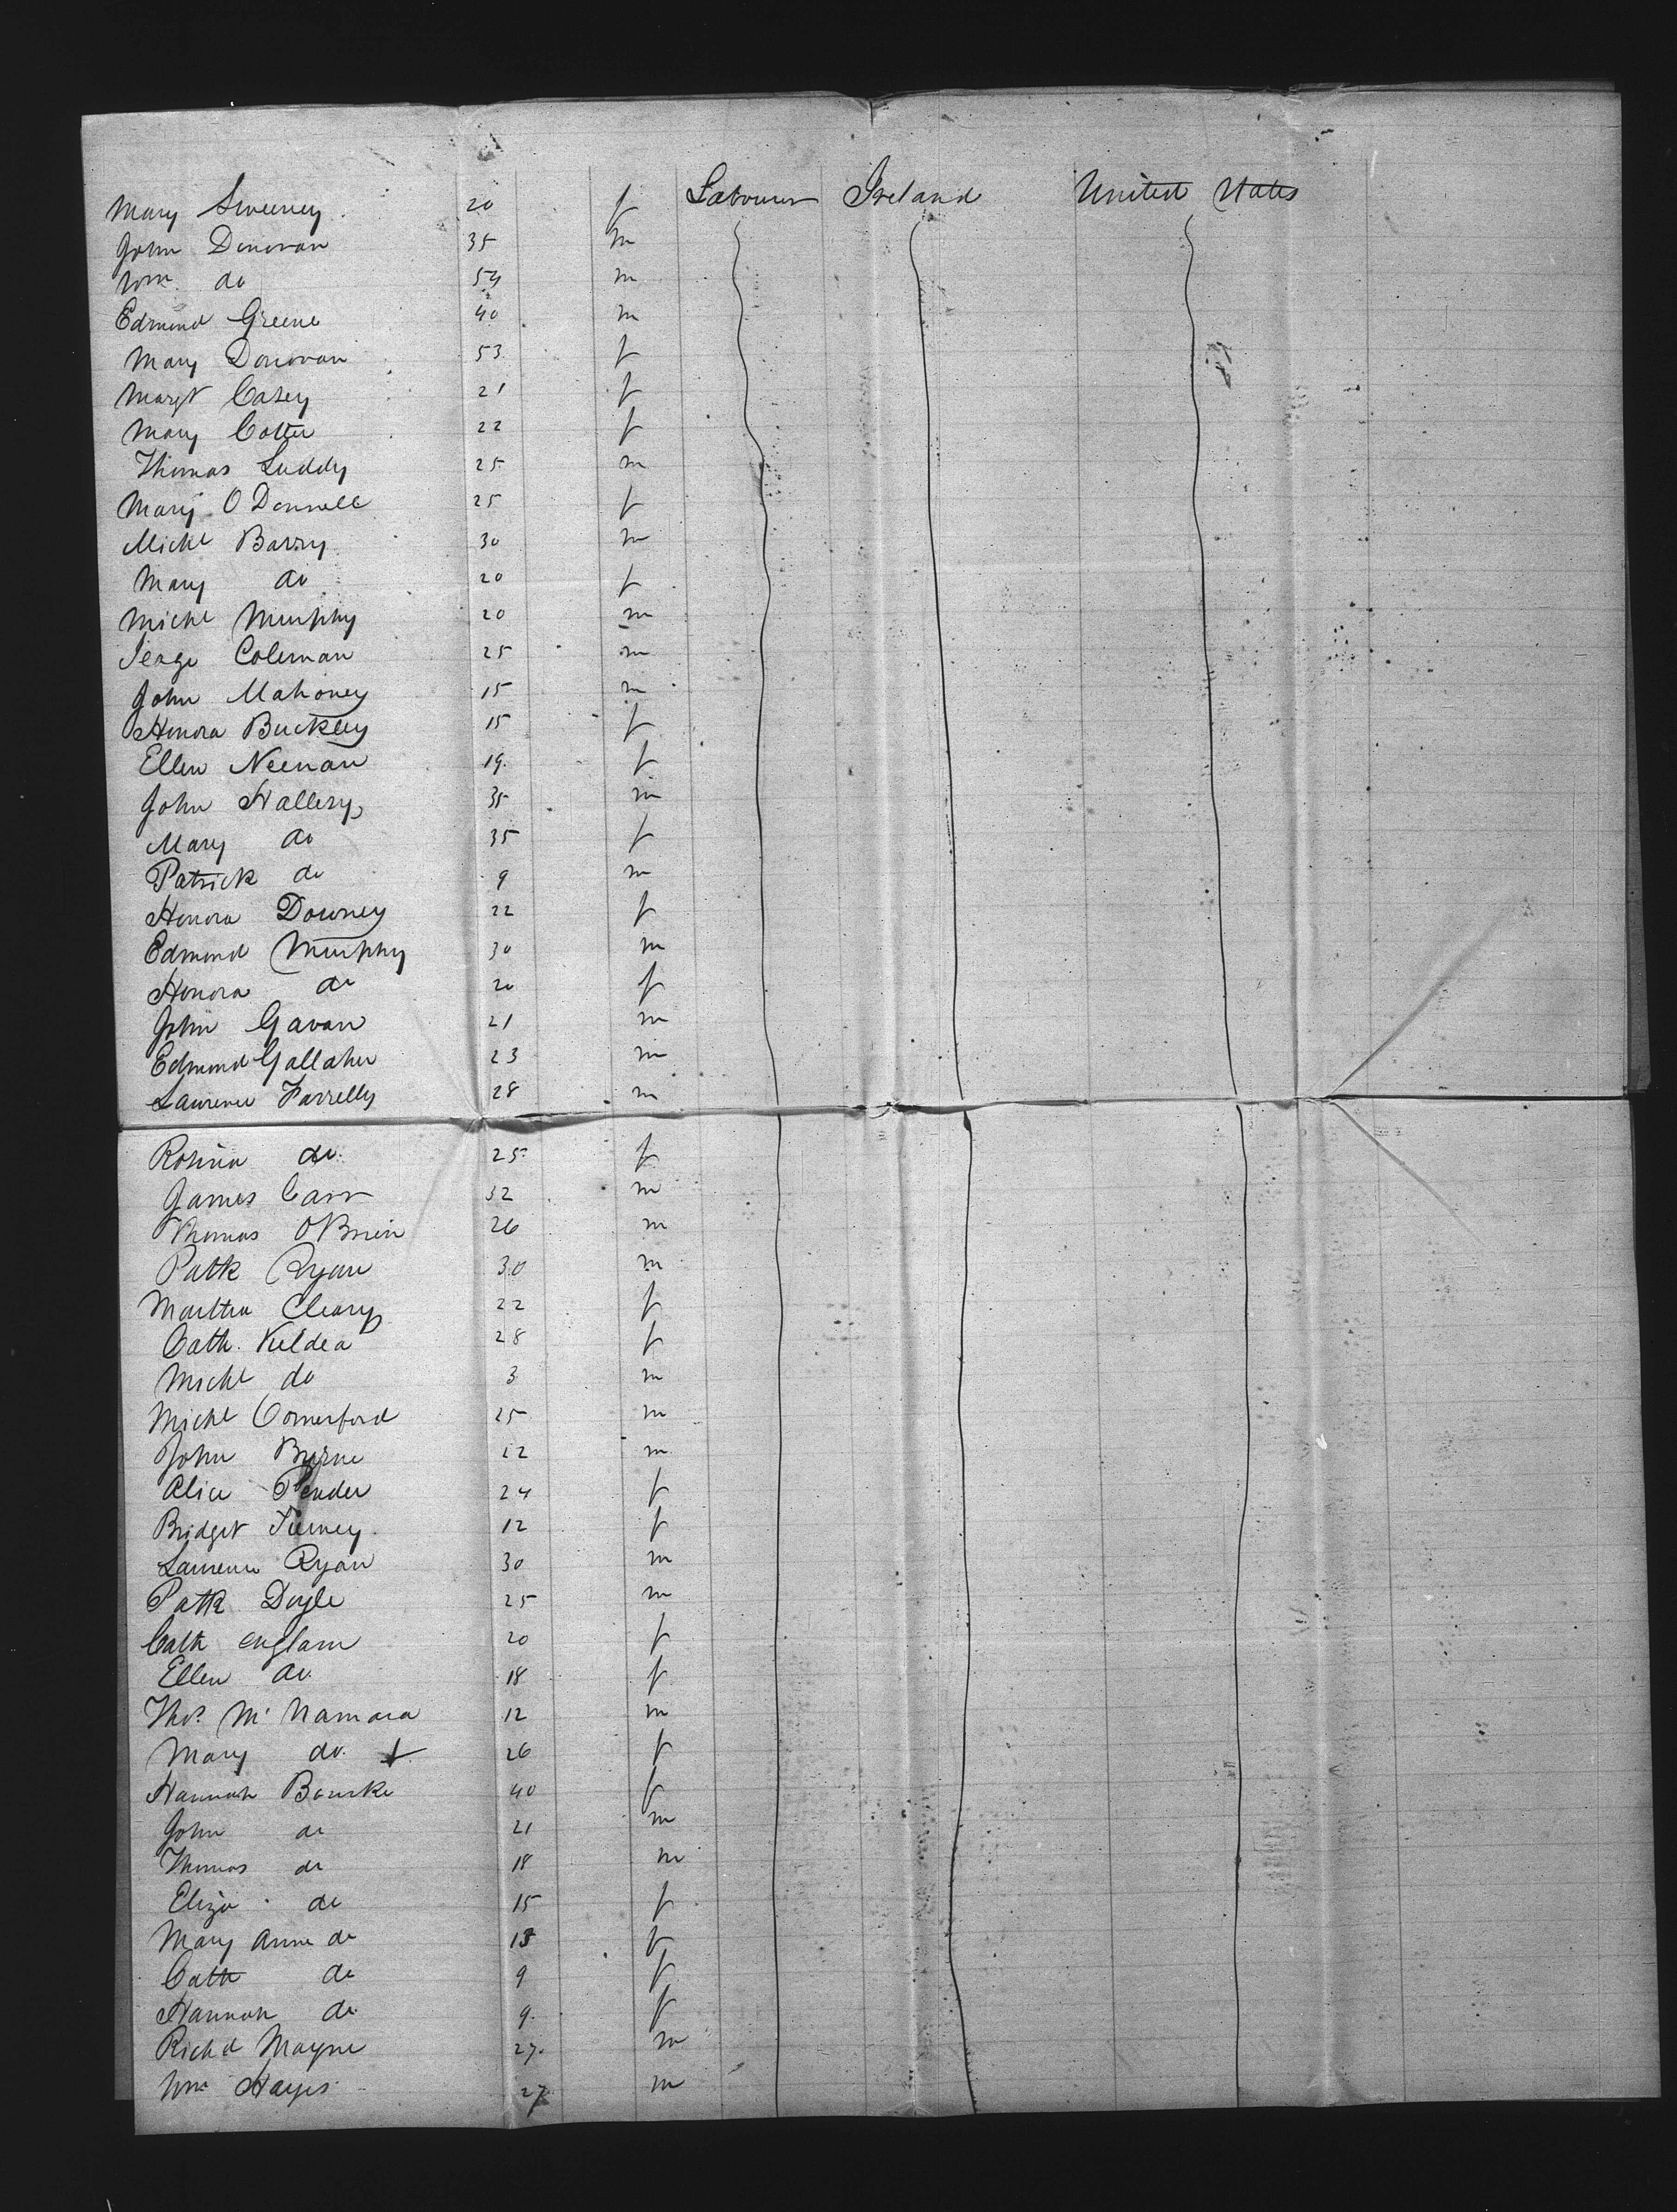 Mary Sweeney 20 f Labourer Ireland United States
John Donovan 35 m
Wm. do 54 m
Edmond Greene 40 m
Mary Donovan 53 f
Margt Casey 21 f
Mary Cotter 22 f
Thomas Luddy 25 m
Mary O Donnell 25 f
Michl Barry 30 m
Mary do 20 f
Michl Murphy 20 m
Coleman 25 m
John Mahoney 15 m
Honora Buckley 15 f
Ellen Neenan 19 f
John Hallery 35 m
Mary do 35 f
Patrick do 9 m
Honora Downey 22 f
Edmond Murphy 30 m
Honora do 20 f
John Gavan 21 m
Edmond Gallaher 23 m
Laurence Farrelly 28 m
Rosina do. 25 f
James Carr 32 m
Thomas OBrien 26 m
Patk Ryan 30 m
Martha Cleary 22 f
Cath. Kildea 28 f
Michl do 3 m
Michl Comerford 25 m
John Byrne 22 m
Alice Pender 24 f
Bridget Tierney 12 f
Laurence Ryan 30 m
Patk Doyle 25 m
Cath 20 f
Ellen do. 18 f
Thos. Mc Namara 12 m
Mary do. 26 f
Hannah Bourke 40 f
John do 21 m
Thomas do 18 m
Eliza do 15 f
Mary Anne do 13 f
Cath do 9 f
Hannah do 9. f
Richd Mayne 27. m
Wm Hayes 27 m